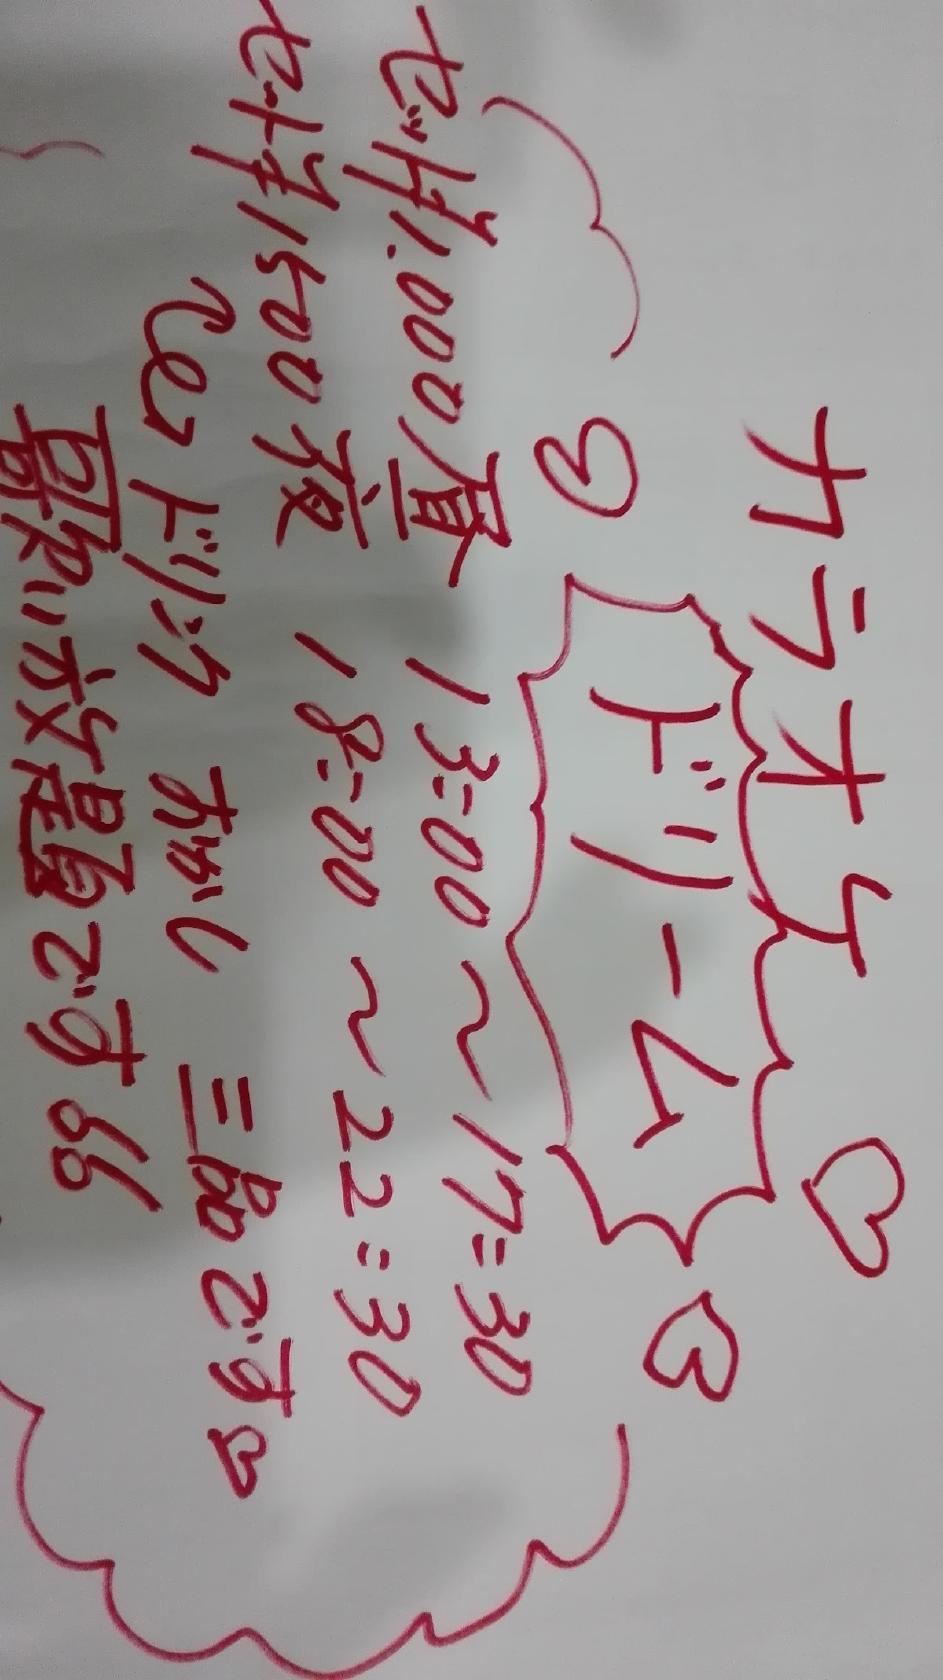 カラオケ
ドリーム
セット1,000昼 13:00〜17:30
セット1500夜 18:00〜22:30
ドリンク おかし 三品です
歌い放題です